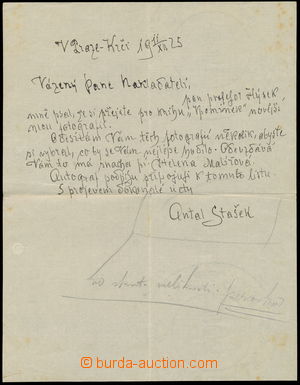 V Praze-Krči 19 11/XII 25
Vážený Pane Nakladateli,
pan profesor Hýsek,
mně psal, že si přejete pro knihu „Vpomínek" novější
mou fotografii.
Obesílám Vám těch fotografií několik, abyste
si vybral, co by se Vám nejlépe hodilo. Odevzdává
Vám to má snacha pí Helena Malířová.
Autograf podpisu připojuji k tomuto listu.
S projevem dokonalé úcty
Antal Stašek
na skut. velikosti
© burda-auction.com